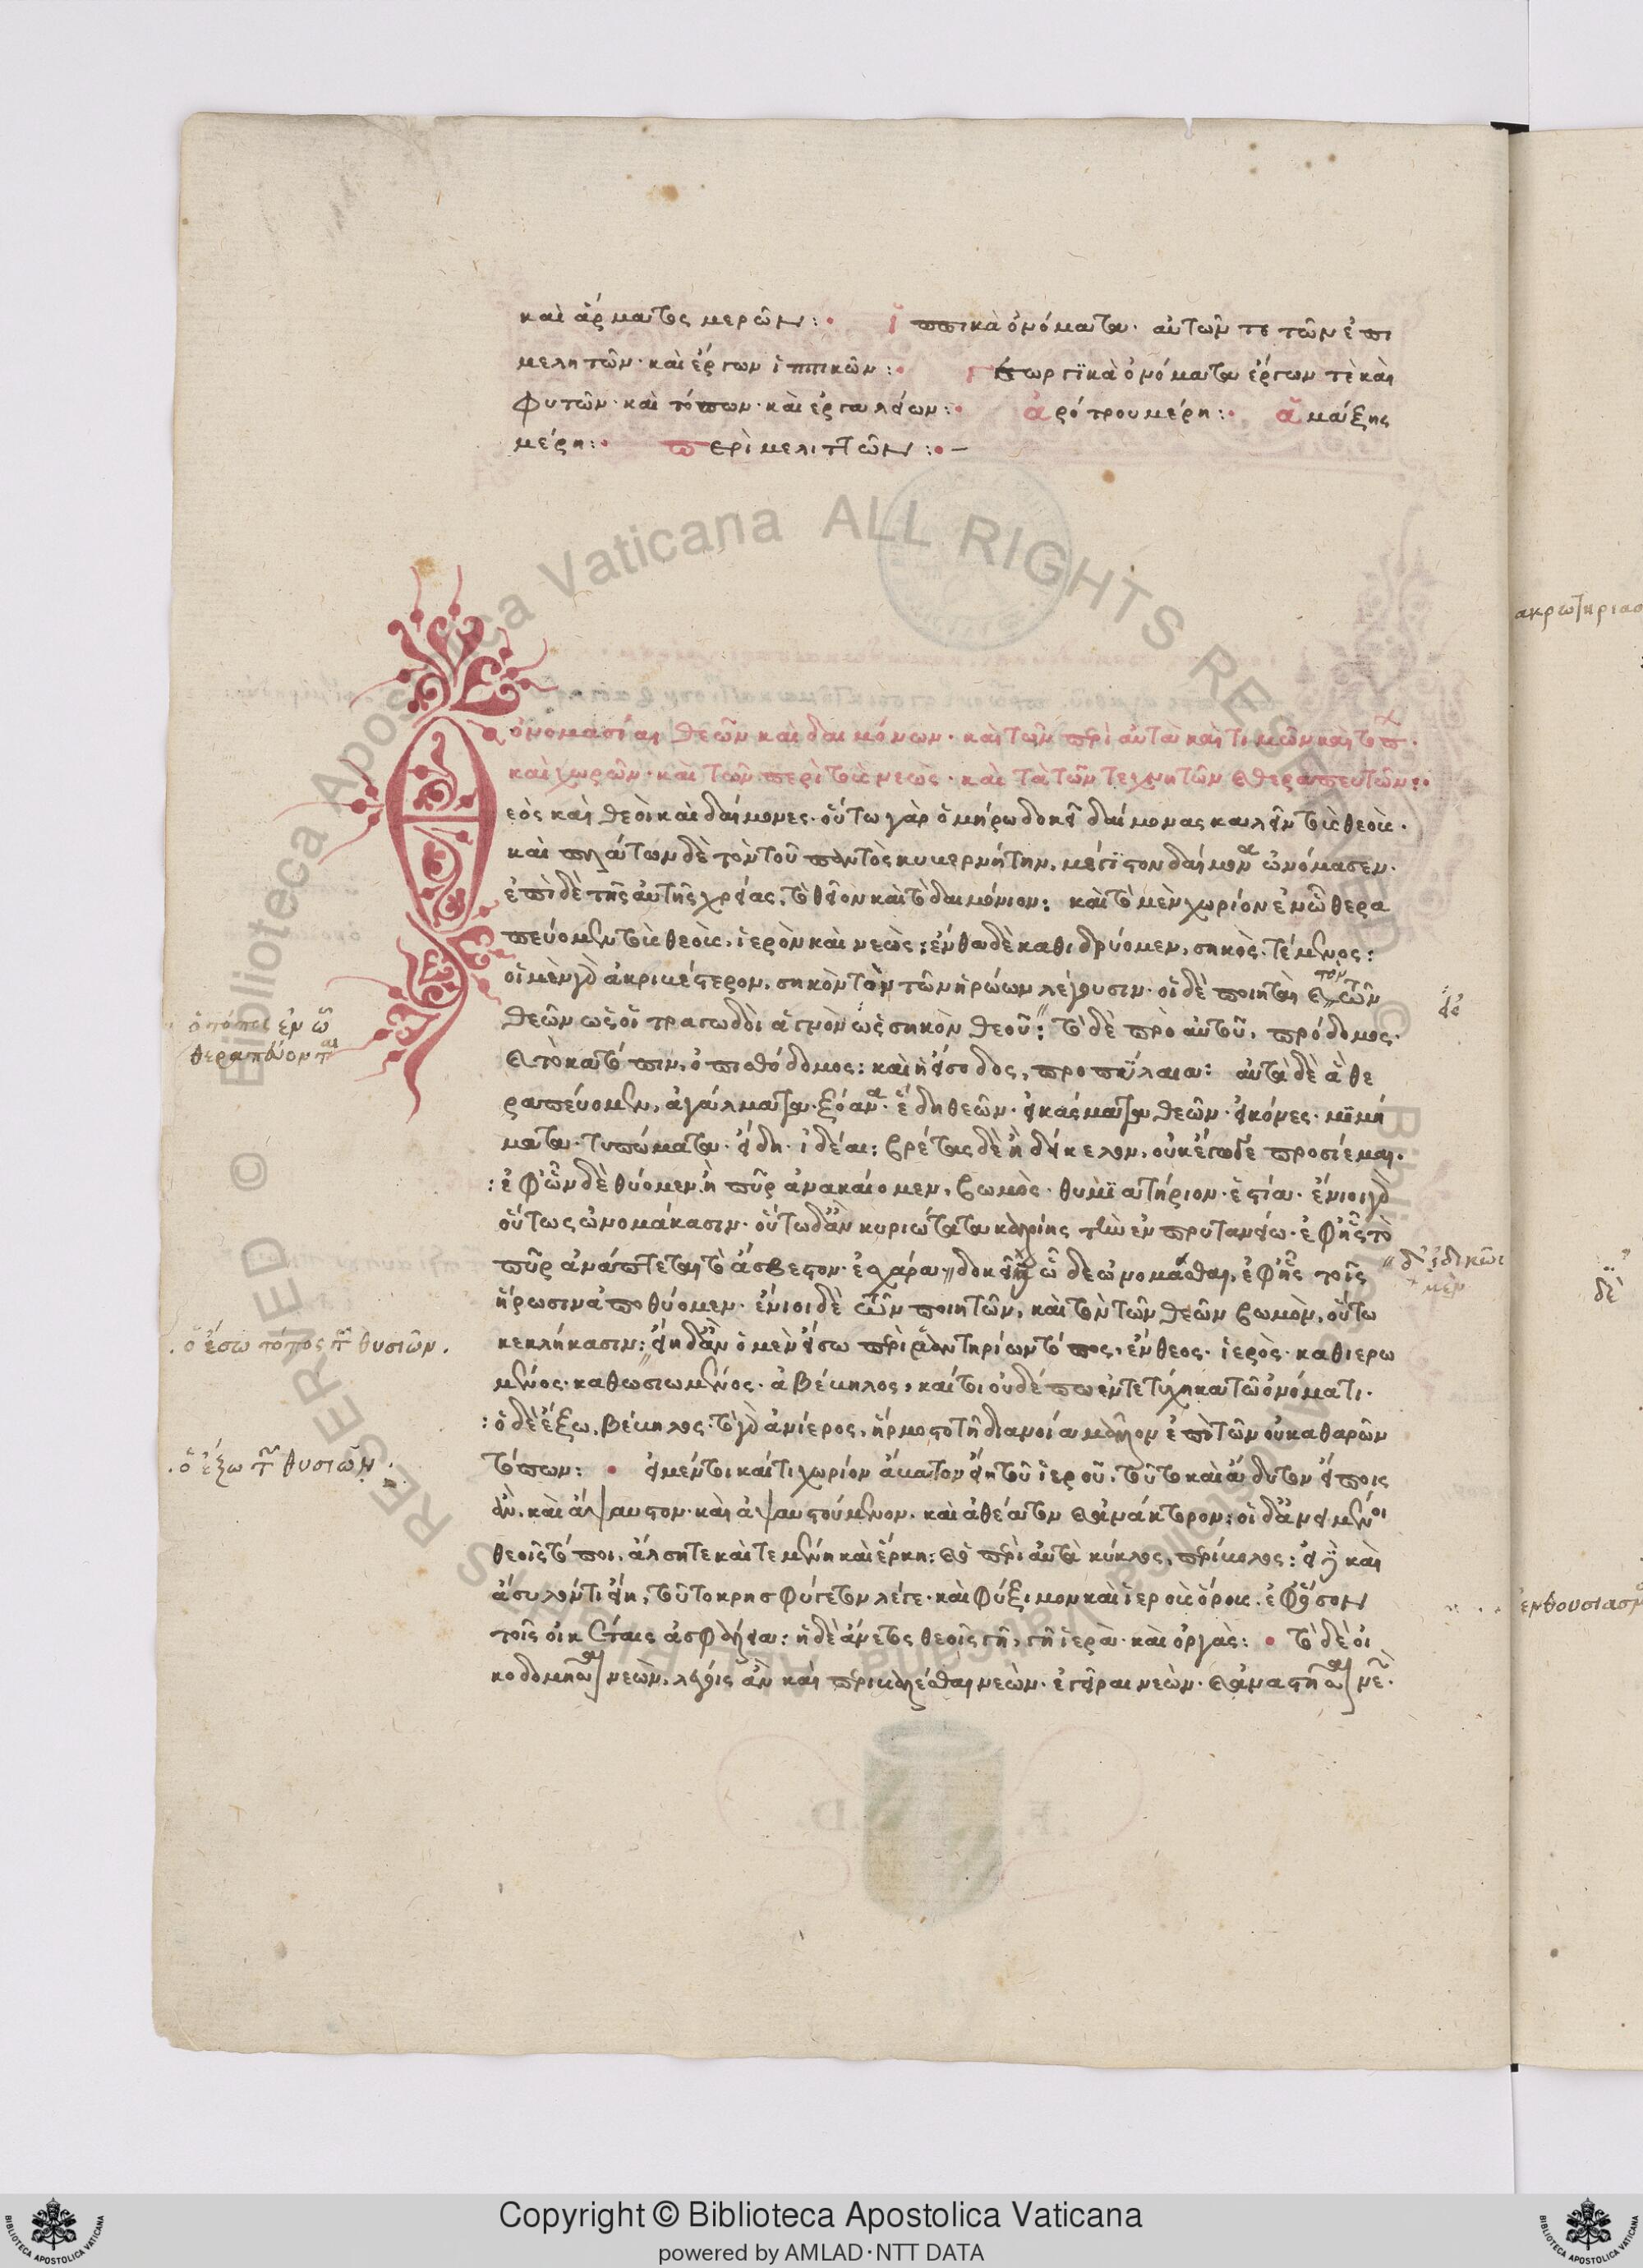 καὶ ἅρματος μερῶν:· ἱππικὰ ὀνόματα· αὐτῶν τε τῶν ἐπι
μελητῶν· καὶ ἔργων ἱππικῶν:· γεωργϊκὰ ὀνόματα ἔργων τὲ καὶ
φυτῶν· καὶ τόπων· καὶ ἐργαλείων:· ἀρότρου μέρη:· ἁμάξης
μέρη:· περὶ μελιττῶν:·–
ὀνομασίαι θεῶν καὶ δαιμόνων· καὶ τῶν περὶ αὐτὰ καὶ τιμῶν καὶ τόπ·
καὶ χωρῶν· καὶ τῶν περὶ τοὺς νεὼς· καὶ τὰ τῶν τεχνητῶν καὶ θεραπευτῶν:·
Θεὸς καὶ θεοὶ καὶ δαίμονες· οὕτω γὰρ ὁμήρω δοκεῖ δαίμονας καλεῖν τοὺς θεοὺς·
καὶ πλάτων δὲ τὸν τοῦ παντὸς κυβερνήτην, μέγϊστον δαίμονα ὠνόμασεν·
ἐπὶ δὲ τῆς αὐτῆς χρείας, τὸ θεῖον καὶ τὸ δαιμόνιον: καὶ τὸ μὲν χωρίον ἐν ᾧ θερα
πεύομεν τοὺς θεοὺς, ἱερὸν καὶ νεὼς: ἔνθα δὲ καθιδρύομεν, σηκὸς. τέμενος:
οἱ μὲν γὰρ ἀκριβέστερον, σηκὸν τὸν τῶν ἡρώων λέγουσιν· οἱ δὲ ποιηταὶ καὶ τὸν τῶν
θεῶν ὡς οἱ τραγωδοὶ ἁγνὸν εἰς σηκὸν θεοῦ: τὸ δὲ πρὸ αὐτοῦ, πρόδομος·
καὶ τὸ κατόπιν, ὀπισθόδομος: καὶ ἡ εἴσοδος, προπύλαια: αὐτὰ δὲ ἃ θε
ραπεύομεν, ἀγάλματα· ξόανα· ἕδη θεῶν· εἰκάσματα θεῶν· εἰκόνες· μϊμή
ματα· τυπώματα· εἴδη· ἰδέαι: βρέτας δὲ ἢ δείκελον, οὐκ ἔγωγε προσίεμαι·
:ἐφ' ὧν δὲ θύομεν ἢ πῦρ ἀνακαίομεν, βωμὸς· θυμϊατήριον· ἑστία· ἔνιοι γὰρ
οὕτως ὠνομάκασιν· οὕτω δ' ἂν κυριώτατα καλοίης τὴν ἐν πρυτανείω· ἐφ' ἧς τὸ
πῦρ ἀνάπτεται τὸ ἄσβεστον· ἐσχάρα δοκεῖ ὧδε ὠνομάσθαι, ἐφ' ἧς τοῖς
ἥρωσιν ἀποθύομεν· ἔνιοι δὲ τῶν ποιητῶν, καὶ τὸν τῶν θεῶν βωμὸν, οὕτω
κεκλήκασιν: εἴη δ' ἂν ὁ μὲν εἴσω περιρραντηρίων τόπος, ἔνθεος· ἱερὸς· καθιερω
μένος· καθωσιωμένος· ἀβέβηλος, καίτοι οὐδέπω ἐντετύχηκα τῶ ὀνόματι·
:ὁ δὲ ἔξω, βέβηλος·
τόπων: · εἰ μέντοι καί τι χωρίον ἄβατον εἴη τοῦ ἱεροῦ, τοῦτο καὶ ἄδυτον εἴποις
ἂν, καὶ ἄψαυστον· καὶ ἀθέατον καὶ ἀνάκτορον: οἱ δ' ἀνειμένοι
θεοῖς τόποι, ἄλση τε καὶ τεμένη καὶ ἕρκη: καὶ ὁ περὶ αὐτὰ κύκλος, περίβολος: εἰ δὲ καὶ
ἄσυλόν τι εἴη, τοῦτο κρησφύγετον λέγε· καὶ φύξιμον καὶ ἱεροὺς ὅρους, ἐφ' ὅσον
τοῖς οἰκέταις ἀσφάλεια: ἡ δὲ ἄνετος θεοῖς γῆ, γῆ ἱερὰ· καὶ ὀργὰς: · τὸ δὲ οἰ
κοδομῆσαι νεὼν, λέγοις ἂν καὶ περιβαλέσθαι νεὼν· ἐγεῖραι νεὼν· καὶ ἀναστῆσαι νε·
ὁ τόπος ἐν ᾧ
θεραπεύονται
.ὁ ἔσω τόπος τῶν θυσιῶν.
.ὁ ἔξω τῶν θυσιῶν.
δ' εἰδικῶς
μὲν
ακρωτηρια
δὲ
ἐνθουσιασμ
Copyright © Biblioteca Apostolica Vaticana
powered by AMLAD·NTT DATA